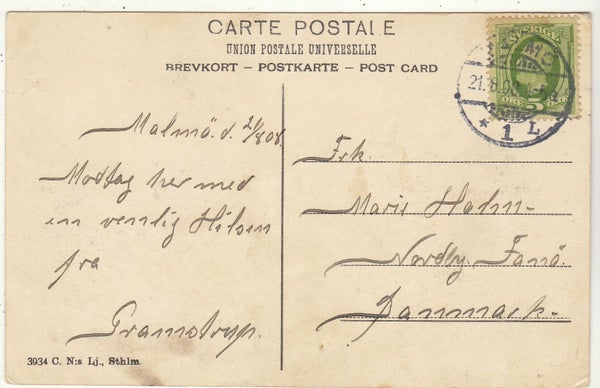 CARTE POSTALE
UNION POSTALE UNIVERSELLE
BREVKORT – POSTKARTE – POST CARD
SVERIGE
ÖRE 5 ÖRE
MALMÖ
21.8.08
* 1 L
Malmö. d. 21/8 08.
Modtag her med
en venlig Hilsen
fra
Gramstryp.
Frk.
Marie Hahn-
Nordby. Fanö.
Danmark.
3934 C. N:s Lj., Sthlm.